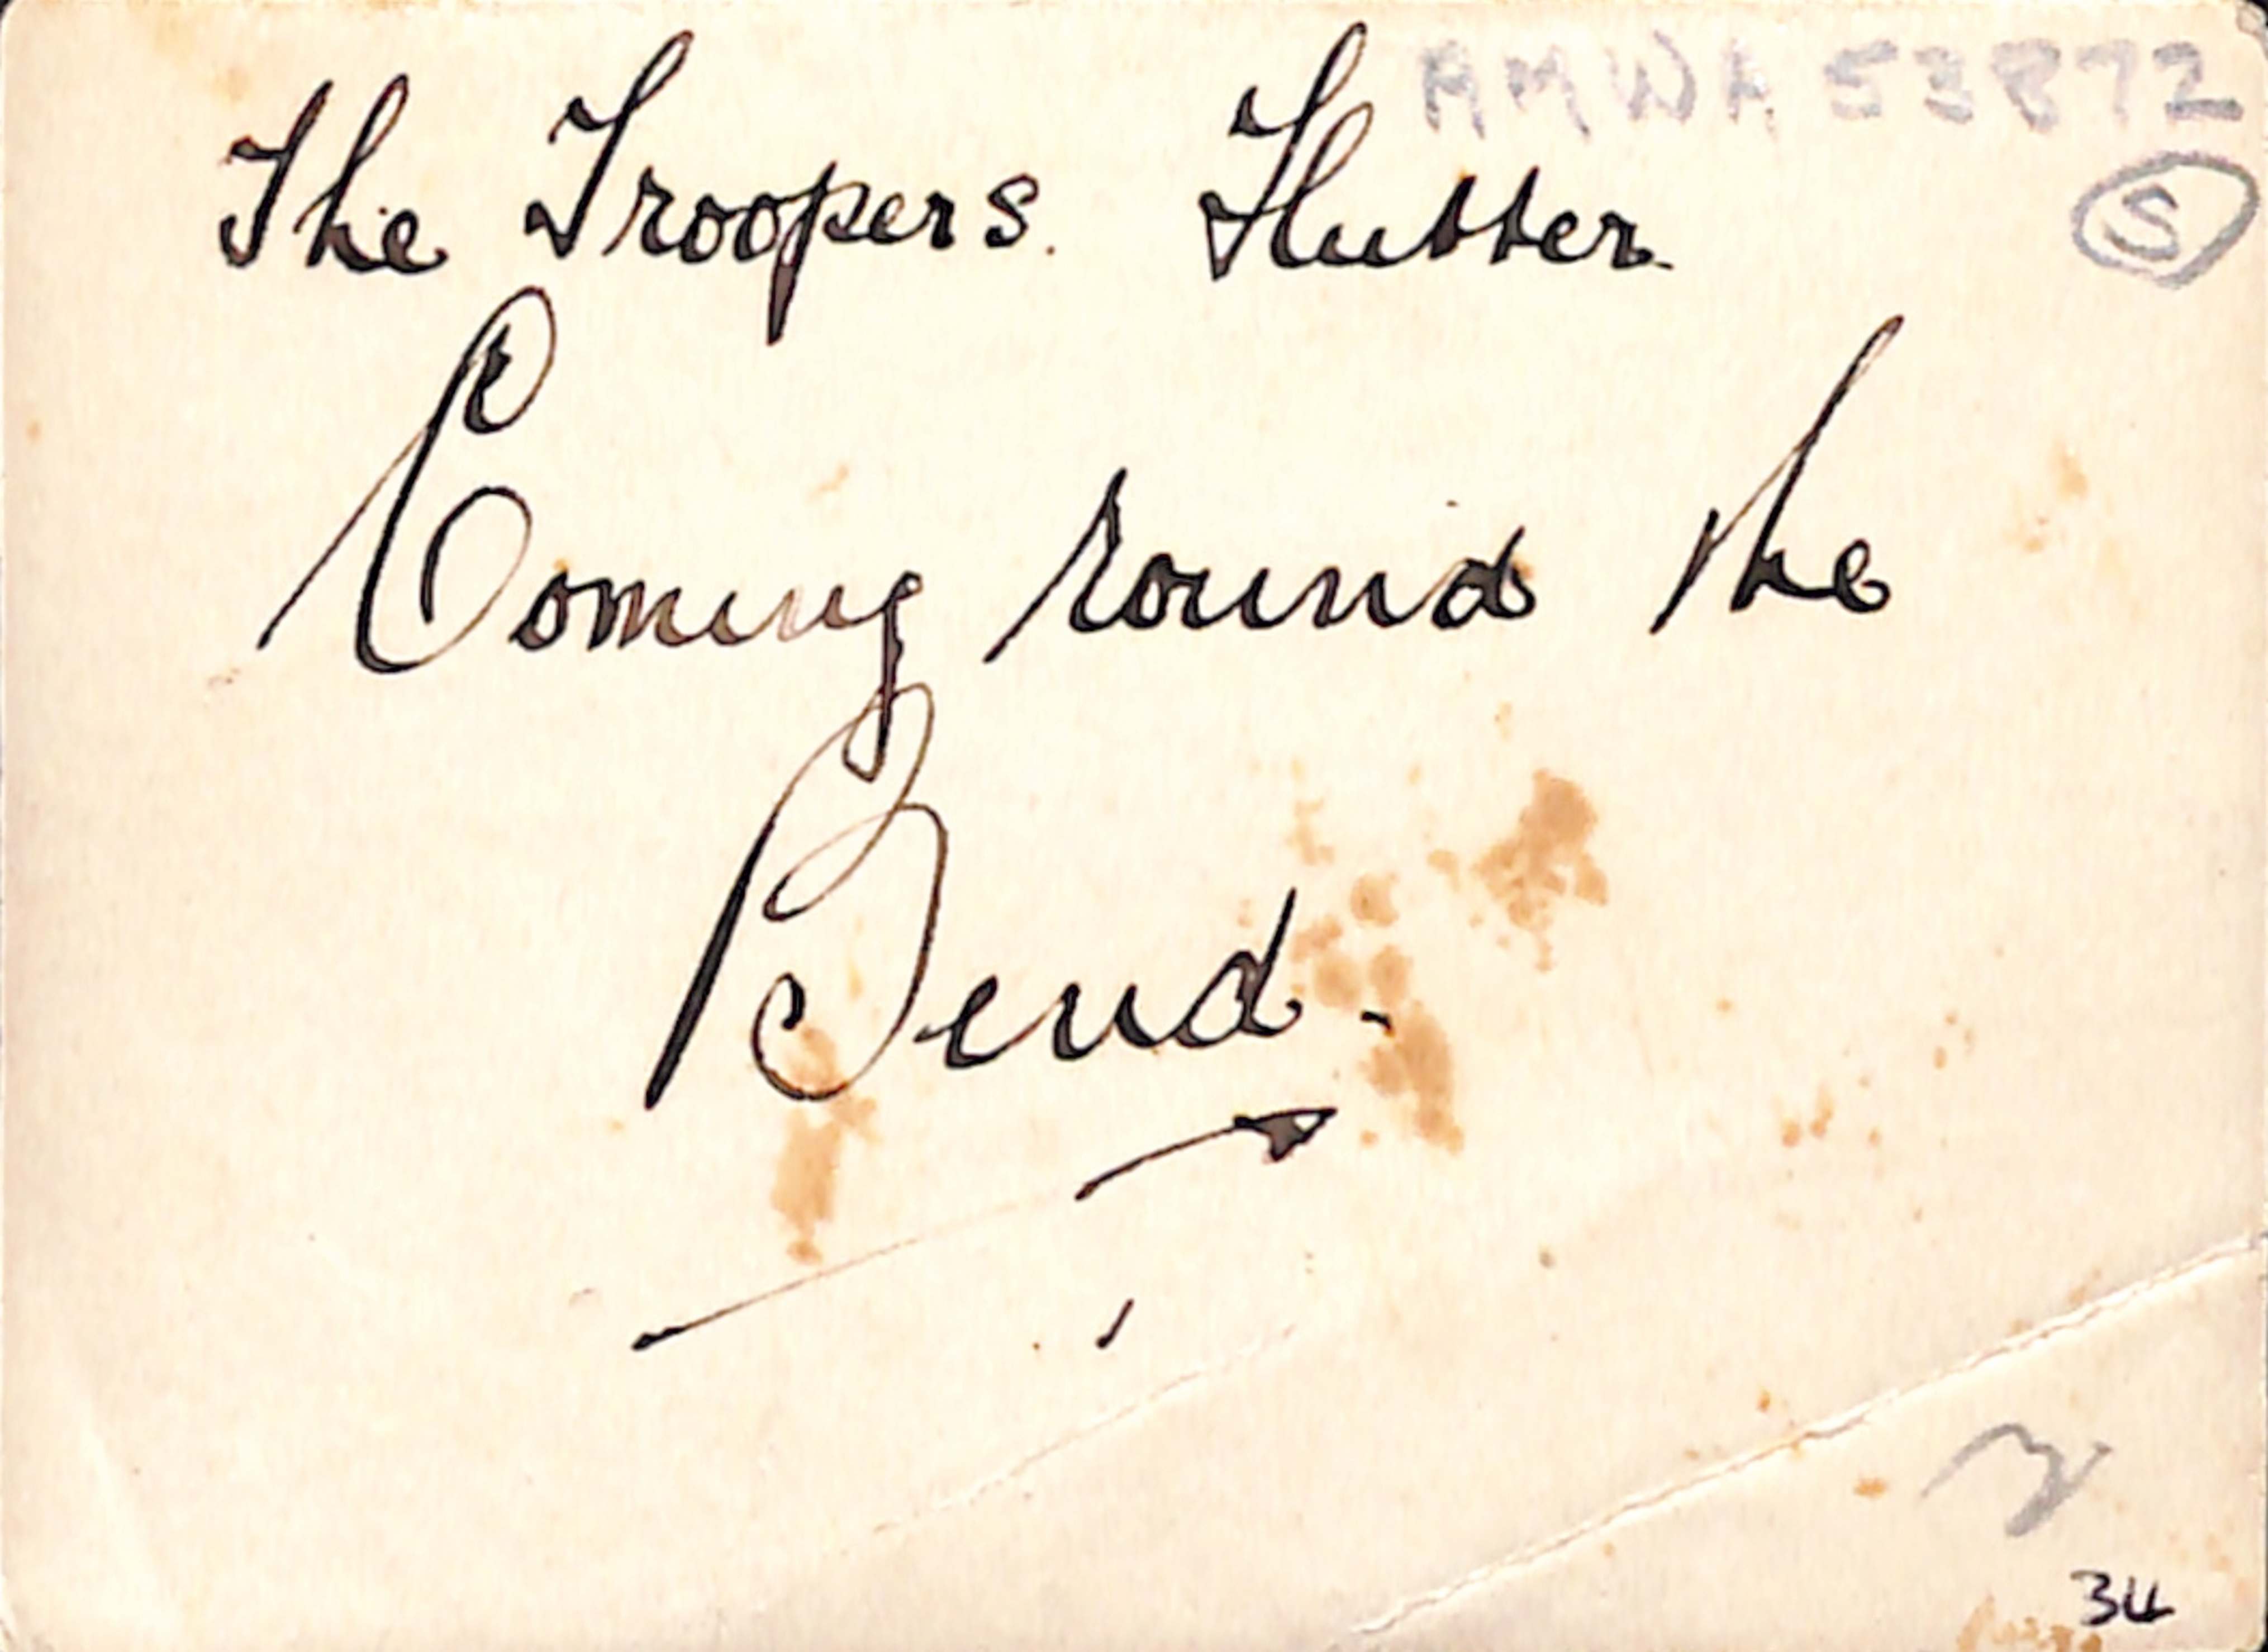 AMWA 53872
The Troopers. Flutter.
S
Coming round the
Bend.
34